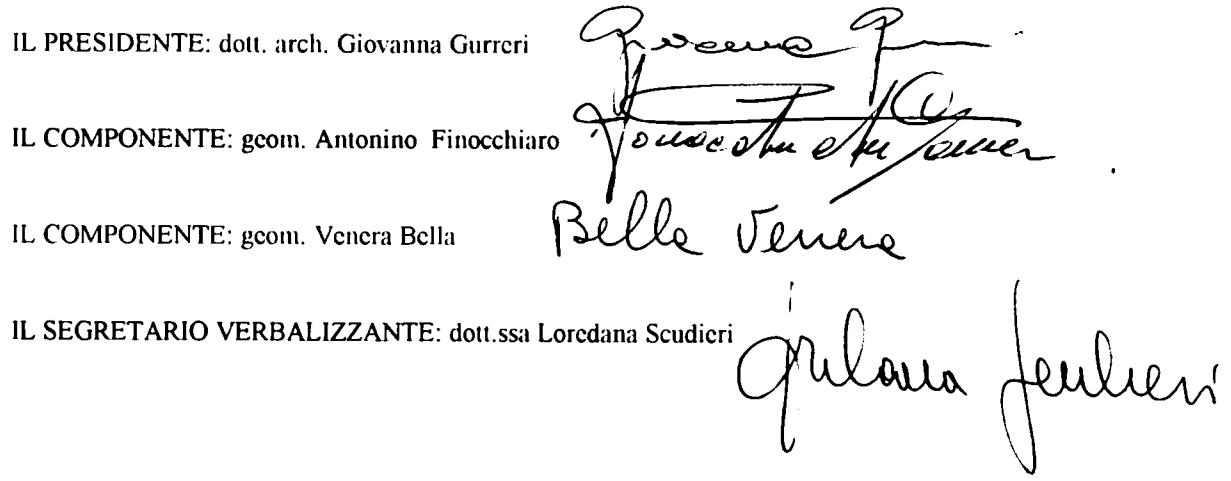 IL PRESIDENTE: dott. arch. Giovanna Gurreri
IL COMPONENTE: geom. Antonino Finocchiaro
IL COMPONENTE: geom. Venera Bella Bella Venera
IL SEGRETARIO VERBALIZZANTE: dott.ssa Loredana Scudieri